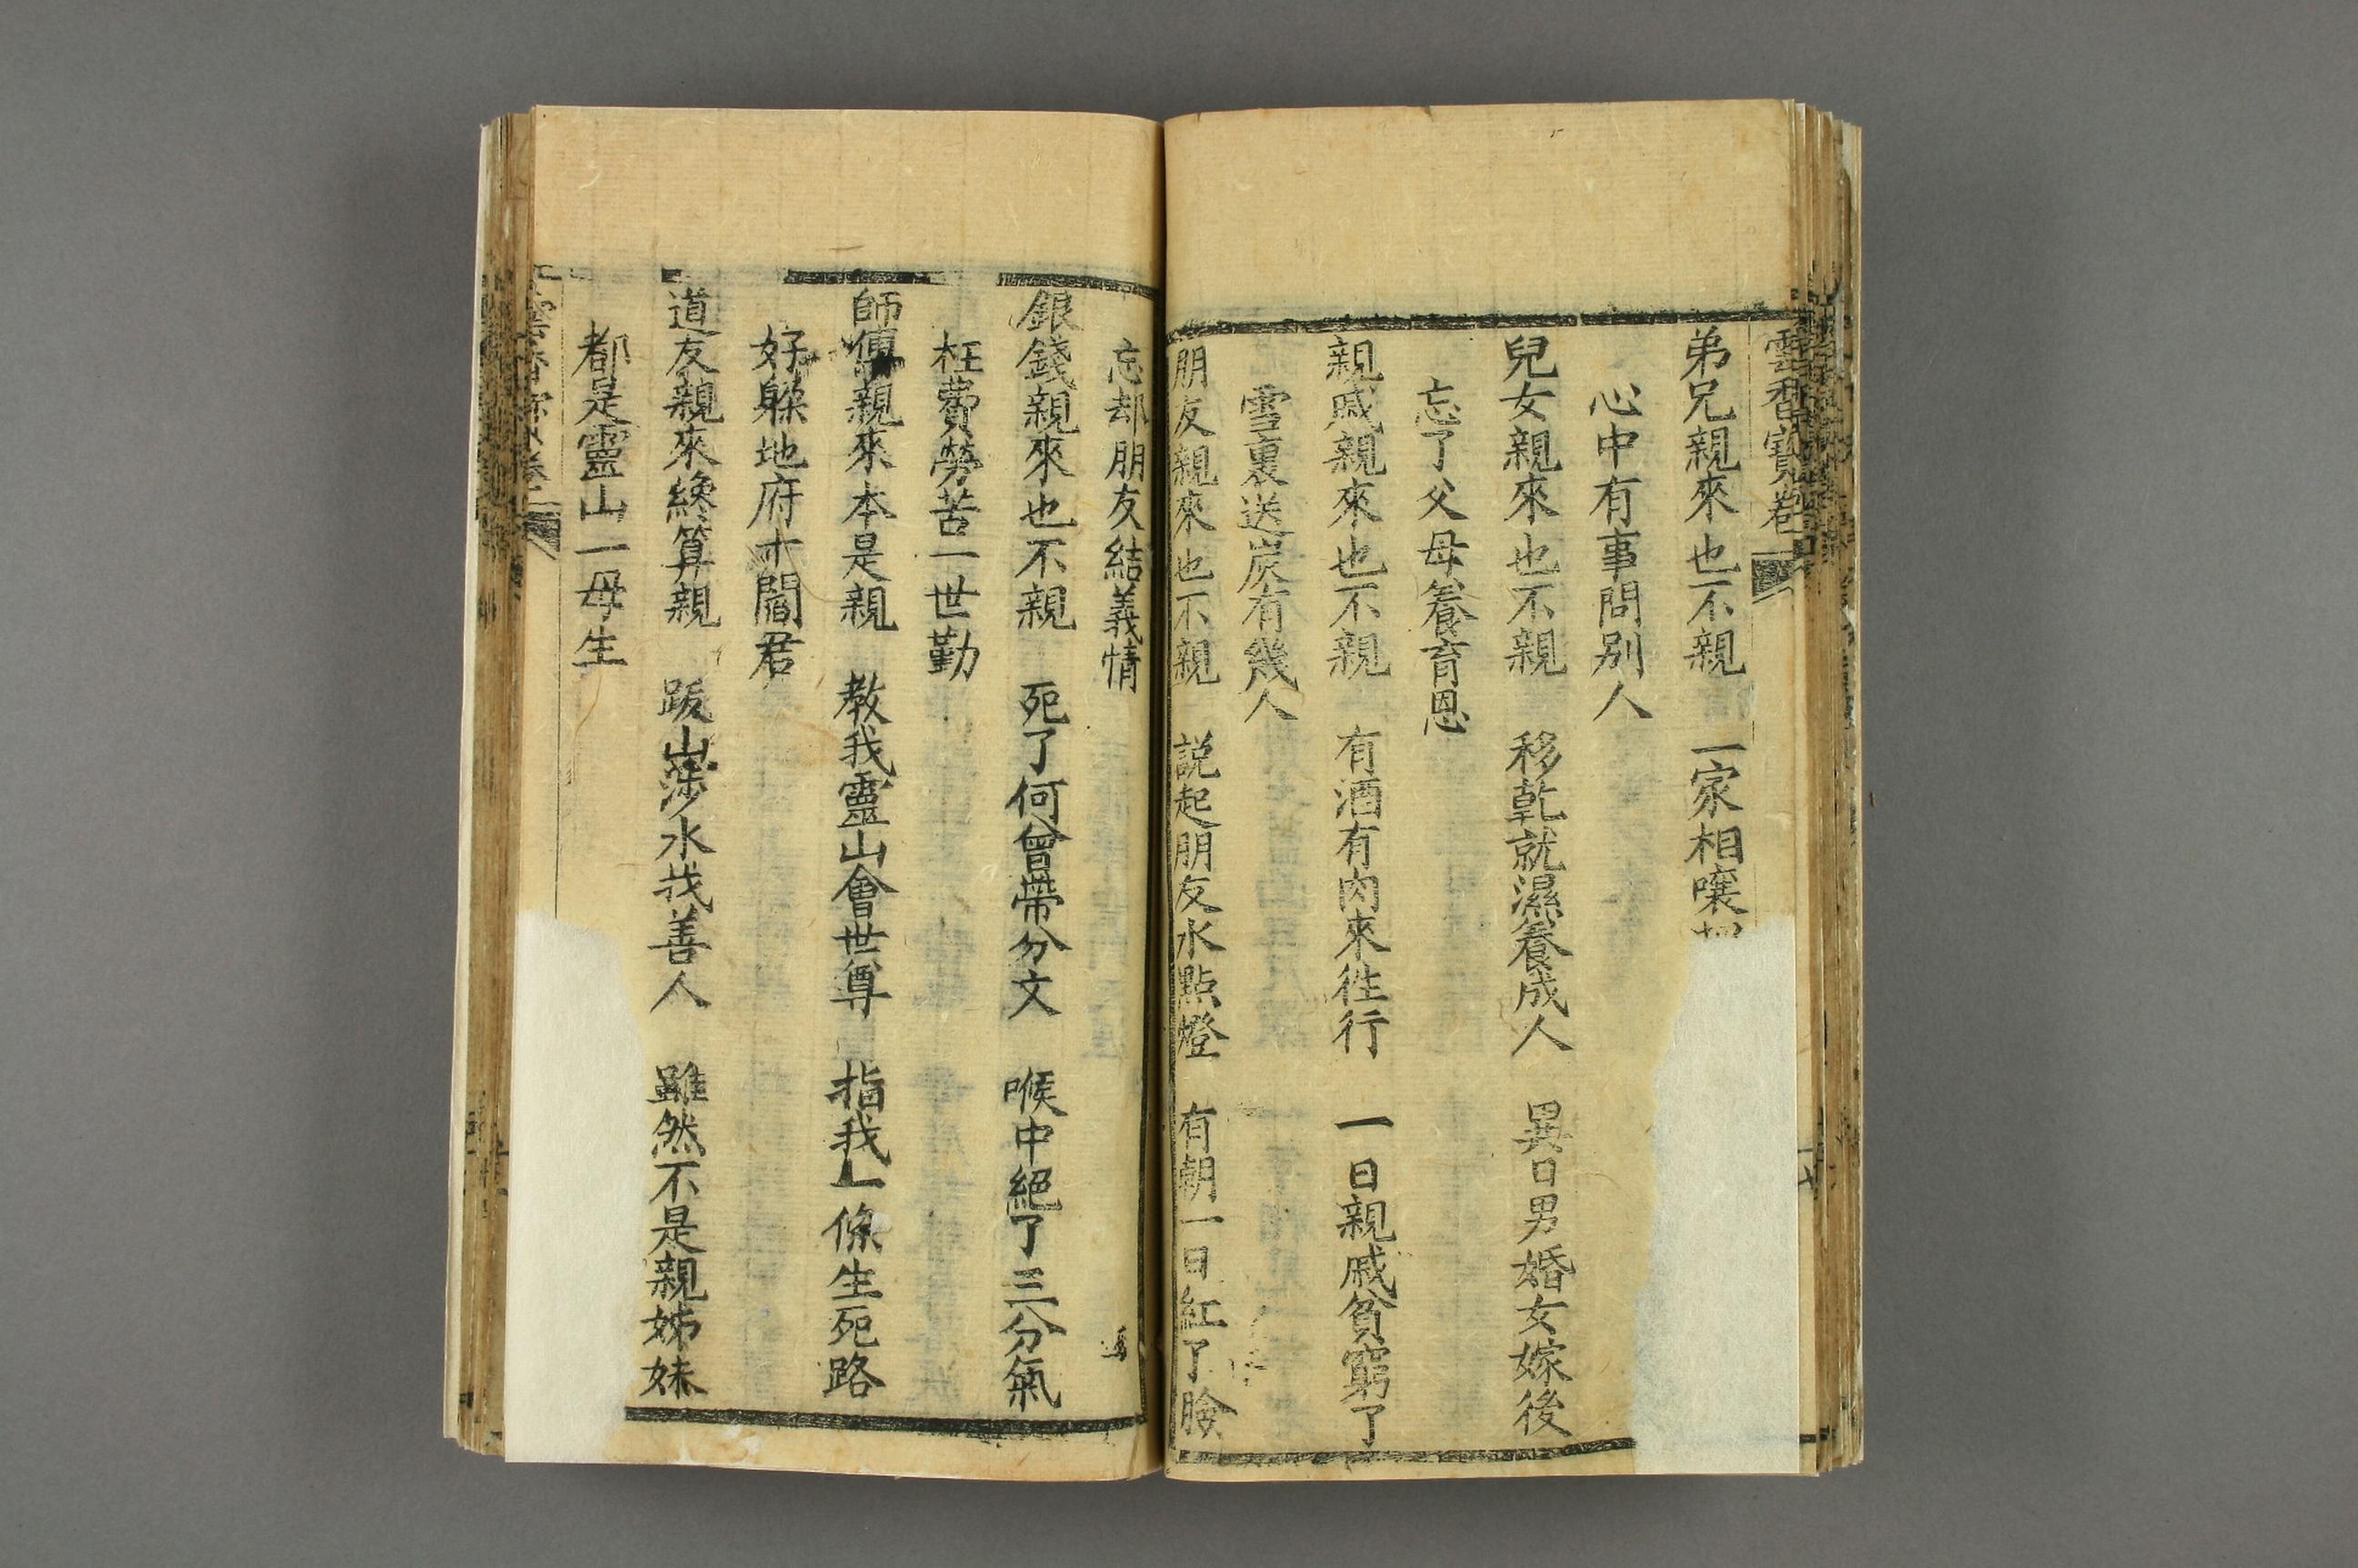 雲香寶卷
弟兄親來也不親　一家相嚷
心中有事問別人
兒女親來也不親　移乾就濕養成人　異日男婚女嫁後
忘了父母養育恩
親戚親來也不親　有酒有肉來徃行　一日親戚貧窮了
雪裏送炭有幾人
朋友親來也不親　説起朋友水點燈　有朝一日紅了臉
忘却朋友結義情
銀錢親來也不親　死了何曾帶分文　喉中絕了三分氣
枉費勞苦一世勤
師傅親來本是親　教我靈山會世尊　指我一條生死路
好躲地府十閻君
道友親來纔算親　跋山涉水找善人　雖然不是親姊妹
都是靈山一母生